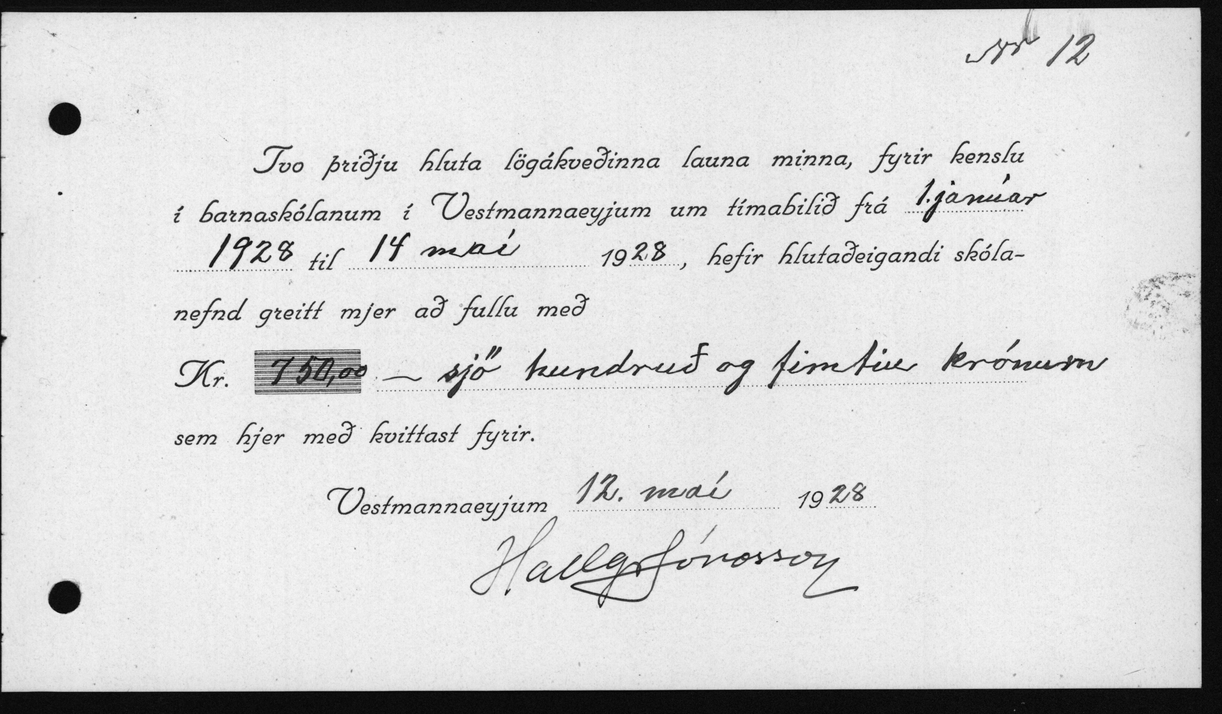 Nr 12
Tvo þriðju hluta lögákveðinna launa minna, fyrir kenslu
í barnaskólanum í Vestmannaeyjum um tímabilið frá 1. janúar
1928 til 14 maí 1928, hefir hlutaðeigandi skóla-
nefnd greitt mjer að fullu með
Kr. 750,00 — sjö hundruð og fimtiu krónum
sem hjer með kvittast fyrir.
Vestmannaeyjum 12. maí 1928
Hallgr Jónasson